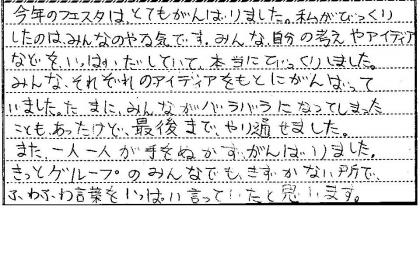 今年のフェスタは、とてもがんばりました。私がびっくり
したのは、みんなのやる気です。みんな、自分の考えやアイディア
などを、いっぱいだしていて、本当にびっくりしました。
みんな、それぞれのアイディアをもとにがんばって
いました。たまに、みんながバラバラになってしまった
ことも、あったけど、最後まで、やり通せました。
また、一人一人が手をぬかず、がんばりました。
きっとグループのみんなでも、きずかない所で、
ふわふわ言葉をいっぱい言っていたと思います。